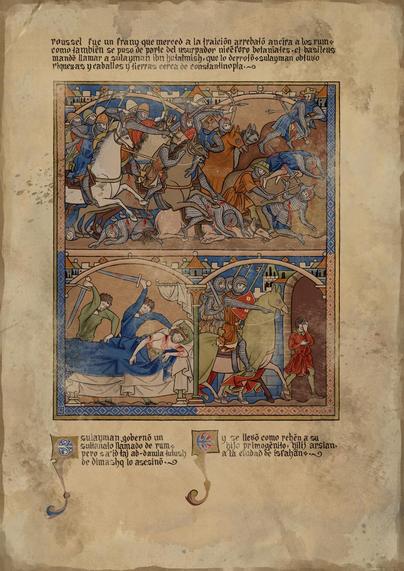 roussel fue un franq que merced a la traición arrebató ancira a los rum
como también se puso de parte del usurpador nicéforo botaniates, el basileus
mandó llamar a sulayman ibn qutalmish, que lo derrotó sulayman obtuvo
riquezas y caballos y tierras cerca de constantinopla.
sulayman gobernó un
sultanato llamado de rum
pero sa'id taj ad-dawla tutush
de dimashq lo asesinó.
y se llevó como rehén a su
hijo primogénito, kilij arslan,
a la ciudad de isfahán.